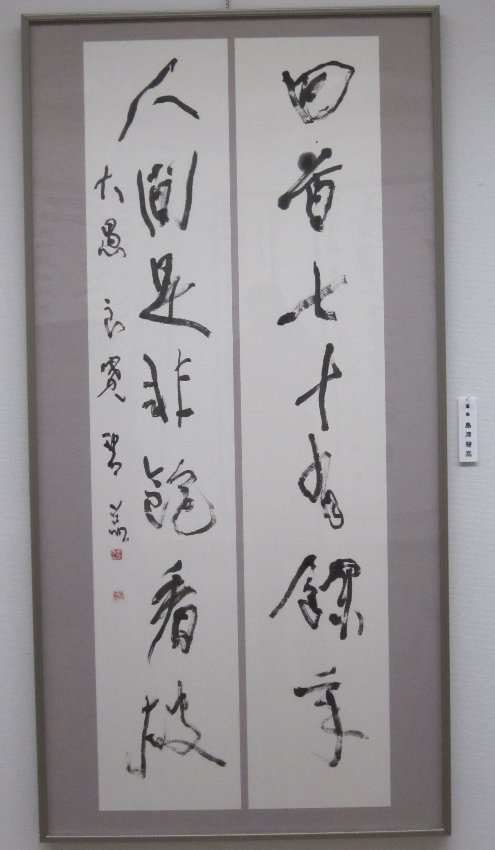 回首七十有餘年
人間是非飽看破
大愚 良寛
島津